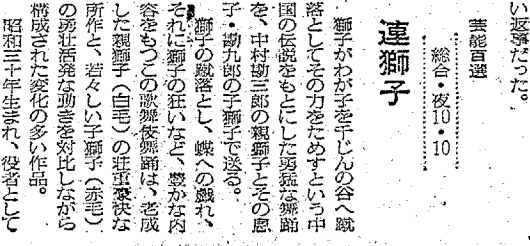 い返事だった。
芸能百選
総合・夜10・10
連獅子
獅子がわが子を千じんの谷へ蹴
落としてその力をためすという中
国の伝説をもとにした勇猛な舞踊
を、中村勘三郎の親獅子とその息
子・勘九郎の子獅子で送る。
獅子の蹴落とし、蝶への戯れ、
それに獅子の狂いなど、豊かな内
容をもつこの歌舞伎舞踊は、老成
した親獅子（白毛）の荘重豪快な
所作と、若々しい子獅子（赤毛）
の勇壮活発な動きを対比しながら
構成された変化の多い作品。
昭和三十年生まれ、役者として